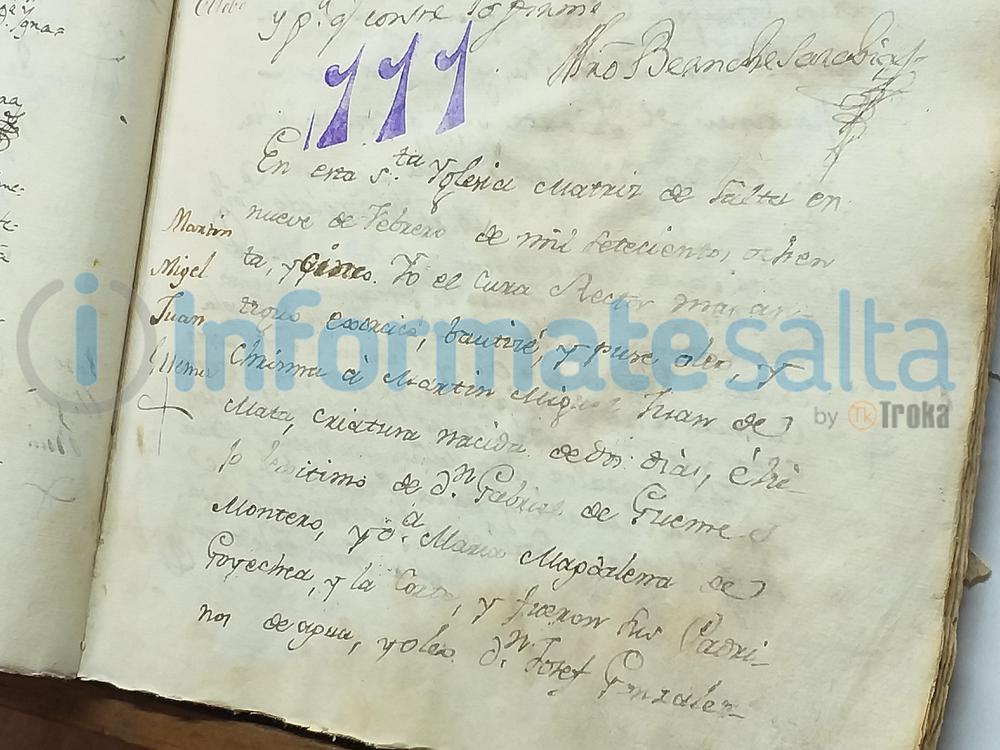 y p.ª q.e conste lo firmo
777
En esta S.ta Yglesia Matriz de Salta en
nueve de Febrero de mil setecientos ochen
ta, y cinco. Yo el Cura Rector
Martin
Migel
Juan
Guemes
exorcisé, bautizé, y puse oleo, y
Chrisma à Martin Miguel Juan de
Mata, criatura nacida de dos dias, é hi-
jo lexitimo de d.n Gabriel de Gueme s
Montero, y d.a Maria Magdalena de
Goyechea, y la Corte, y fueron sus Padri-
nos de agua, y oleo d.n Josef Gonzalez
informatesalta
by Tk Troka